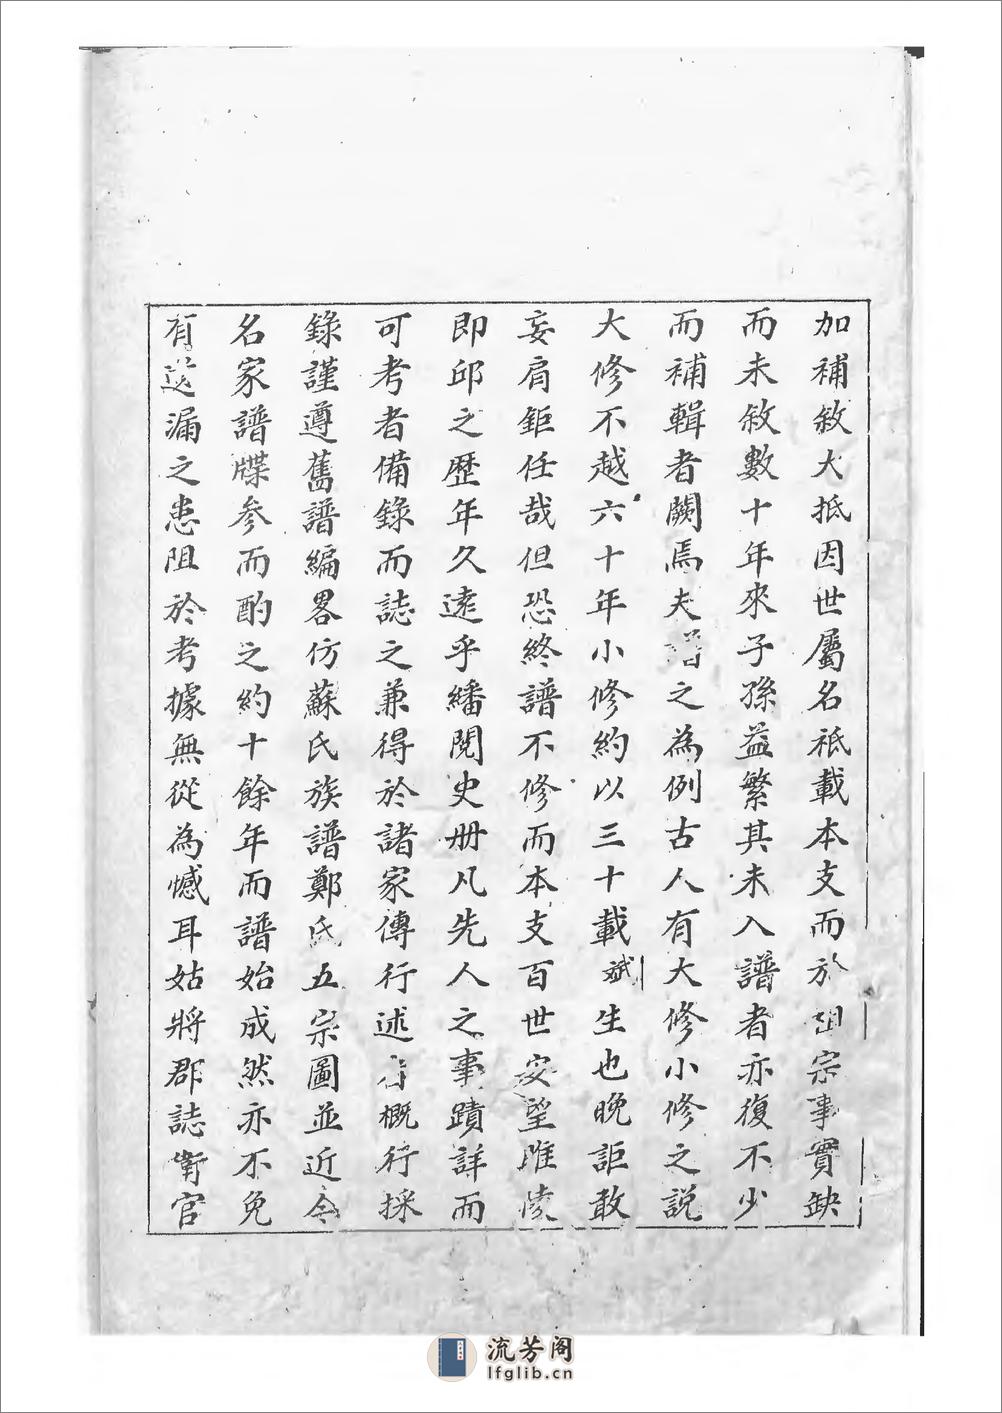 加補敘大抵因世屬名祗載本支而於祖宗事實缺
而未敘數十年來子孫益繁其未入譜者亦復不少
而補輯者闕焉夫譜之為例古人有大修小修之説
大修不越六十年小修約以三十載斌生也晩詎敢
妄肩鉅任哉但恐終譜不修而本支百世安望睢陵
即邱之歷年久遠乎繙閱史册凡先人之事蹟詳而
可考者備錄而誌之兼得於諸家傳行述者概行採
錄謹遵舊譜編畧仿蘇氏族譜鄭氏五宗圖並近今
名家譜牒参而酌之約十餘年而譜始成然亦不免
有遺漏之患阻於考據無從為憾耳姑將郡誌銜官
流芳阁
lfglib.cn